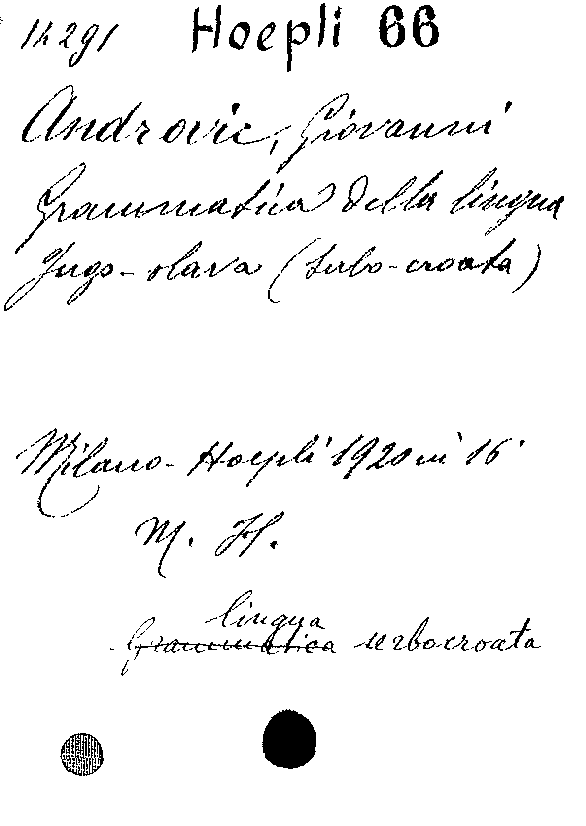 14291 Hoepli 66
Androvic, Giovanni
Grammatica della lingua
Jugo-slava (serbo-croata)
Milano - Hoepli 1920 in 16°
M. H.
lingua
Grammatica serbocroata